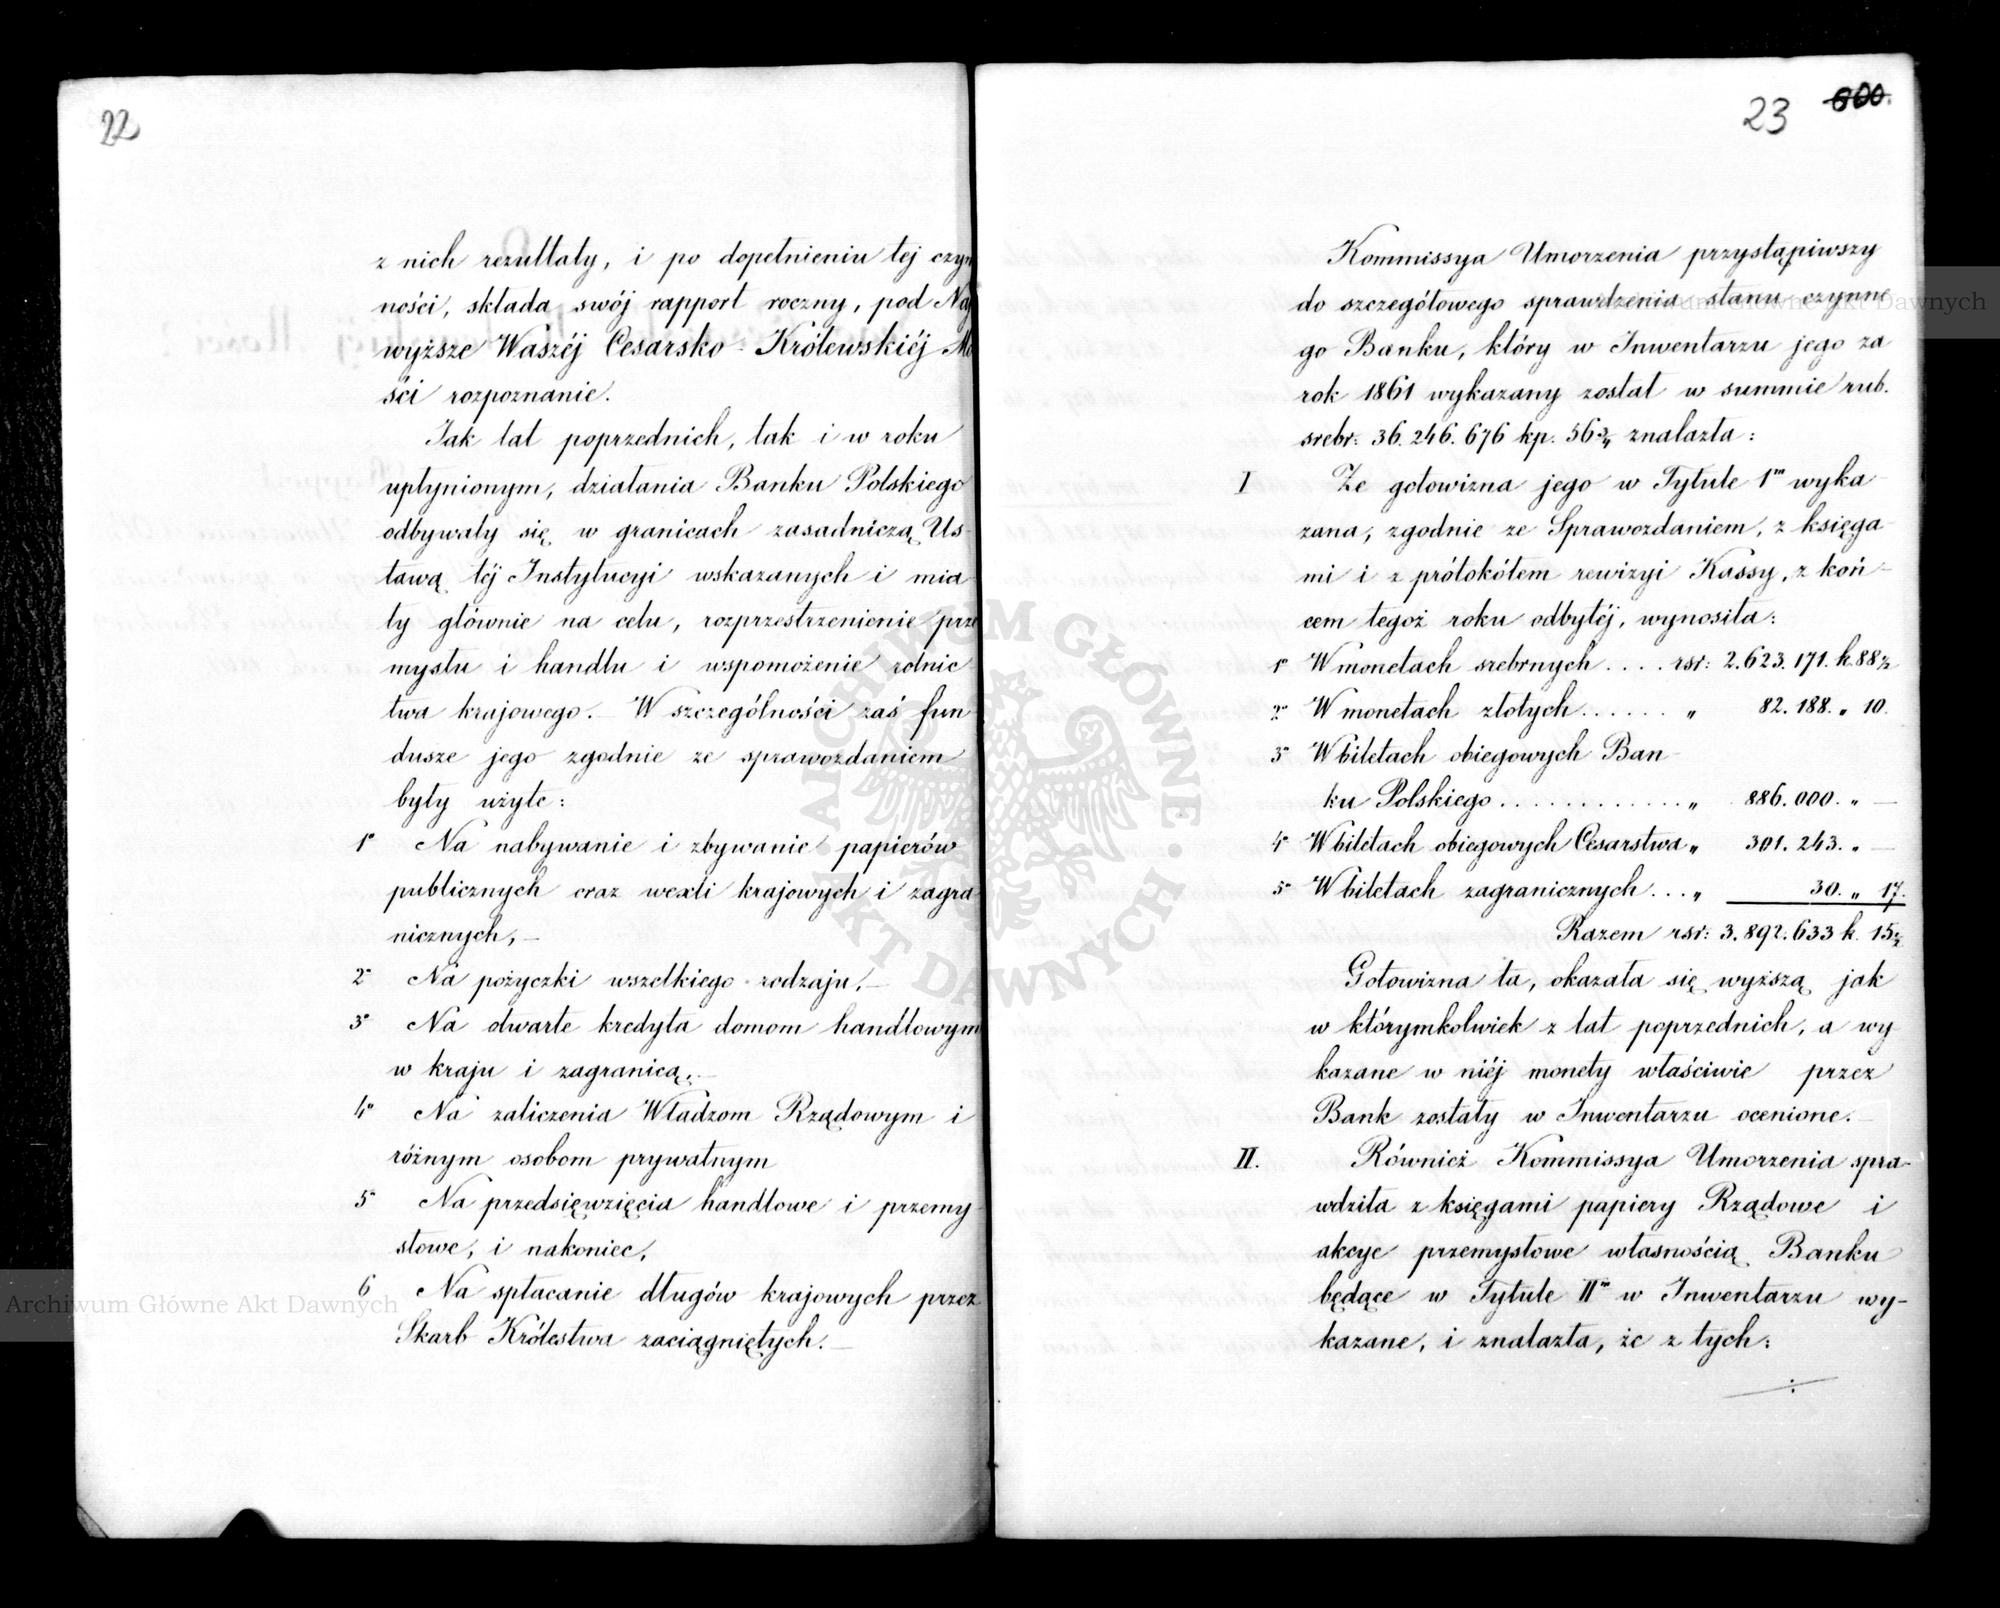 22
z nich rezultaty, i po dopełnieniu tej czyn
ności, składa swój rapport roczny, pod Naj
wyższe Waszéj Cesarsko-Królewskiéj Mo
ści rozpoznanie.
Jak lat poprzednich, tak i w roku
upłynionym, działania Banku Polskiego
odbywały się w granicach zasadniczą Us-
tawą téj Instytucyi wskazanych i mia-
ły głównie na celu, rozprzestrzenienie prze
mysłu i handlu i wspomożenie rolnic-
twa krajowego. — W szczególności zaś fun
dusze jego zgodnie ze sprawozdaniem
były użyte:
1° Na nabywanie i zbywanie papierów
publicznych oraz wexli krajowych i zagra
nicznych, —
2° Na pożyczki wszelkiego rodzaju, —
3° Na otwarte kredyta domom handlowym
w kraju i zagranicą, —
4° Na zaliczenia Władzom Rządowym i
różnym osobom prywatnym
5° Na przedsięwzięcia handlowe i przemy-
słowe, i nakoniec,
6 Na spłacanie długów krajowych przez
Skarb Królestwa zaciągniętych. —
23 600.
Kommissya Umorzenia przystąpiwszy
do szczegółowego sprawdzenia stanu czynne
go Banku, który w Inwentarzu jego za
rok 1861 wykazany został w summie rub.
srebr: 36.246.676 kp. 56¾ znalazła:
I Ze gotowizna jego w Tytule 1m wyka-
zana, zgodnie ze Sprawozdaniem, z księga-
mi i z prótokółem rewizyi Kassy, z koń-
cem tegoż roku odbytéj, wynosiła:
1° W monetach srebrnych .... rsr: 2.623.171. k. 88½
2° W monetach złotych ...... „ 82.188. „ 10.
3° W biletach obiegowych Ban-
ku Polskiego ............ „ 886.000. „ —
4° W biletach obiegowych Cesarstwa „ 301.243. „ —
5° W biletach zagranicznych ... „ 30. „ 17.
Razem rsr: 3.892.633 k. 15½
Gotowizna ta, okazała się wyższą jak
w którymkolwiek z lat poprzednich, a wy
kazane w niéj monety właściwie przez
Bank zostały w Inwentarzu ocenione. —
II. Również Kommissya Umorzenia spra-
wdziła z księgami papiery Rządowe i
akcye przemysłowe własnością Banku
będące w Tytule IIm w Inwentarzu wy-
kazane, i znalazła, że z tych:
Archiwum Główne Akt Dawnych
Archiwum Główne Akt Dawnych
ARCHIWUM GŁÓWNE AKT DAWNYCH